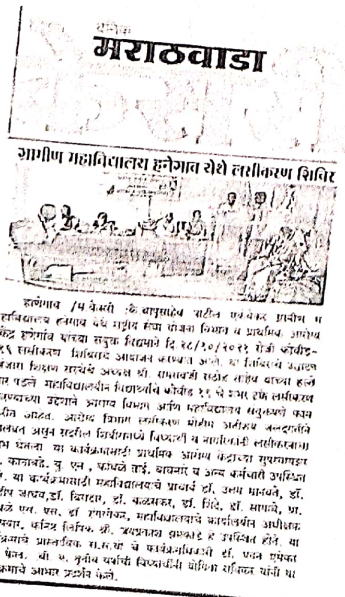 दैनिक
मराठवाडा
ग्रामीण महाविद्यालय हनेगाव येथे लसीकरण शिबिर
हाणेगाव /प्र केसरी :कै बापुसाहेब पाटील एकंबेकर ग्रामीण म
हाविद्यालय हनेगाव येथे राष्ट्रीय सेवा योजना विभाग व प्राथमिक आरोग्य
केंद्र हणेगाव यांच्या संयुक्त विद्यमाने दि २८/१०/२०२१ रोजी कोवीड-
१९ लसीकरण शिबिराचे आयोजन करण्यात आले. या शिबिराचे उद्घाटन
शिक्षण संस्थेचे अध्यक्ष श्री. रामरावजी राठोड साहेब यांच्या हस्ते
पार पडले महाविद्यालयीन विद्यार्थ्यांचे कोवीड १९ चे शंभर टक्के लसीकरण
करण्याच्या उद्देशाने आरोग्य विभाग आणि महाविद्यालय संयुक्तपणे काम
करीत आहेत. आरोग्य विभाग लसीकरण मोहीम अतीशय जलदगतीने
राबवत असुन सदरील शिबीरामध्ये विद्यार्थी व नागरीकांनी लसीकरणाचा
लाभ घेतला या कार्यक्रमासाठी प्राथमिक आरोग्य केंद्राच्या
यु. एन , कांबळे ताई, व अन्य कर्मचारी उपस्थित
या कार्यक्रमासाठी महाविद्यालयाचे प्राचार्य डॉ. उत्तम मानवते, डॉ.
जाधव,डॉ. बिरादार, डॉ. कळसकर, डॉ. शिंदे, डॉ. प्रा.
एल. एस. डॉ रणगावकर, महाविद्यालयाचे कार्यालयीन अधीक्षक
कनिष्ठ लिपिक श्री. जयप्रकाश हे उपस्थित होते. या
कार्यक्रमाचे प्रास्ताविक रा.से.यो चे कार्यक्रमाधिकारी डॉ. पवन
केले. बी. ए. तृतीय वर्षाची विद्यार्थीनी यांनी या
कार्यक्रमाचे आभार प्रदर्शन केले.